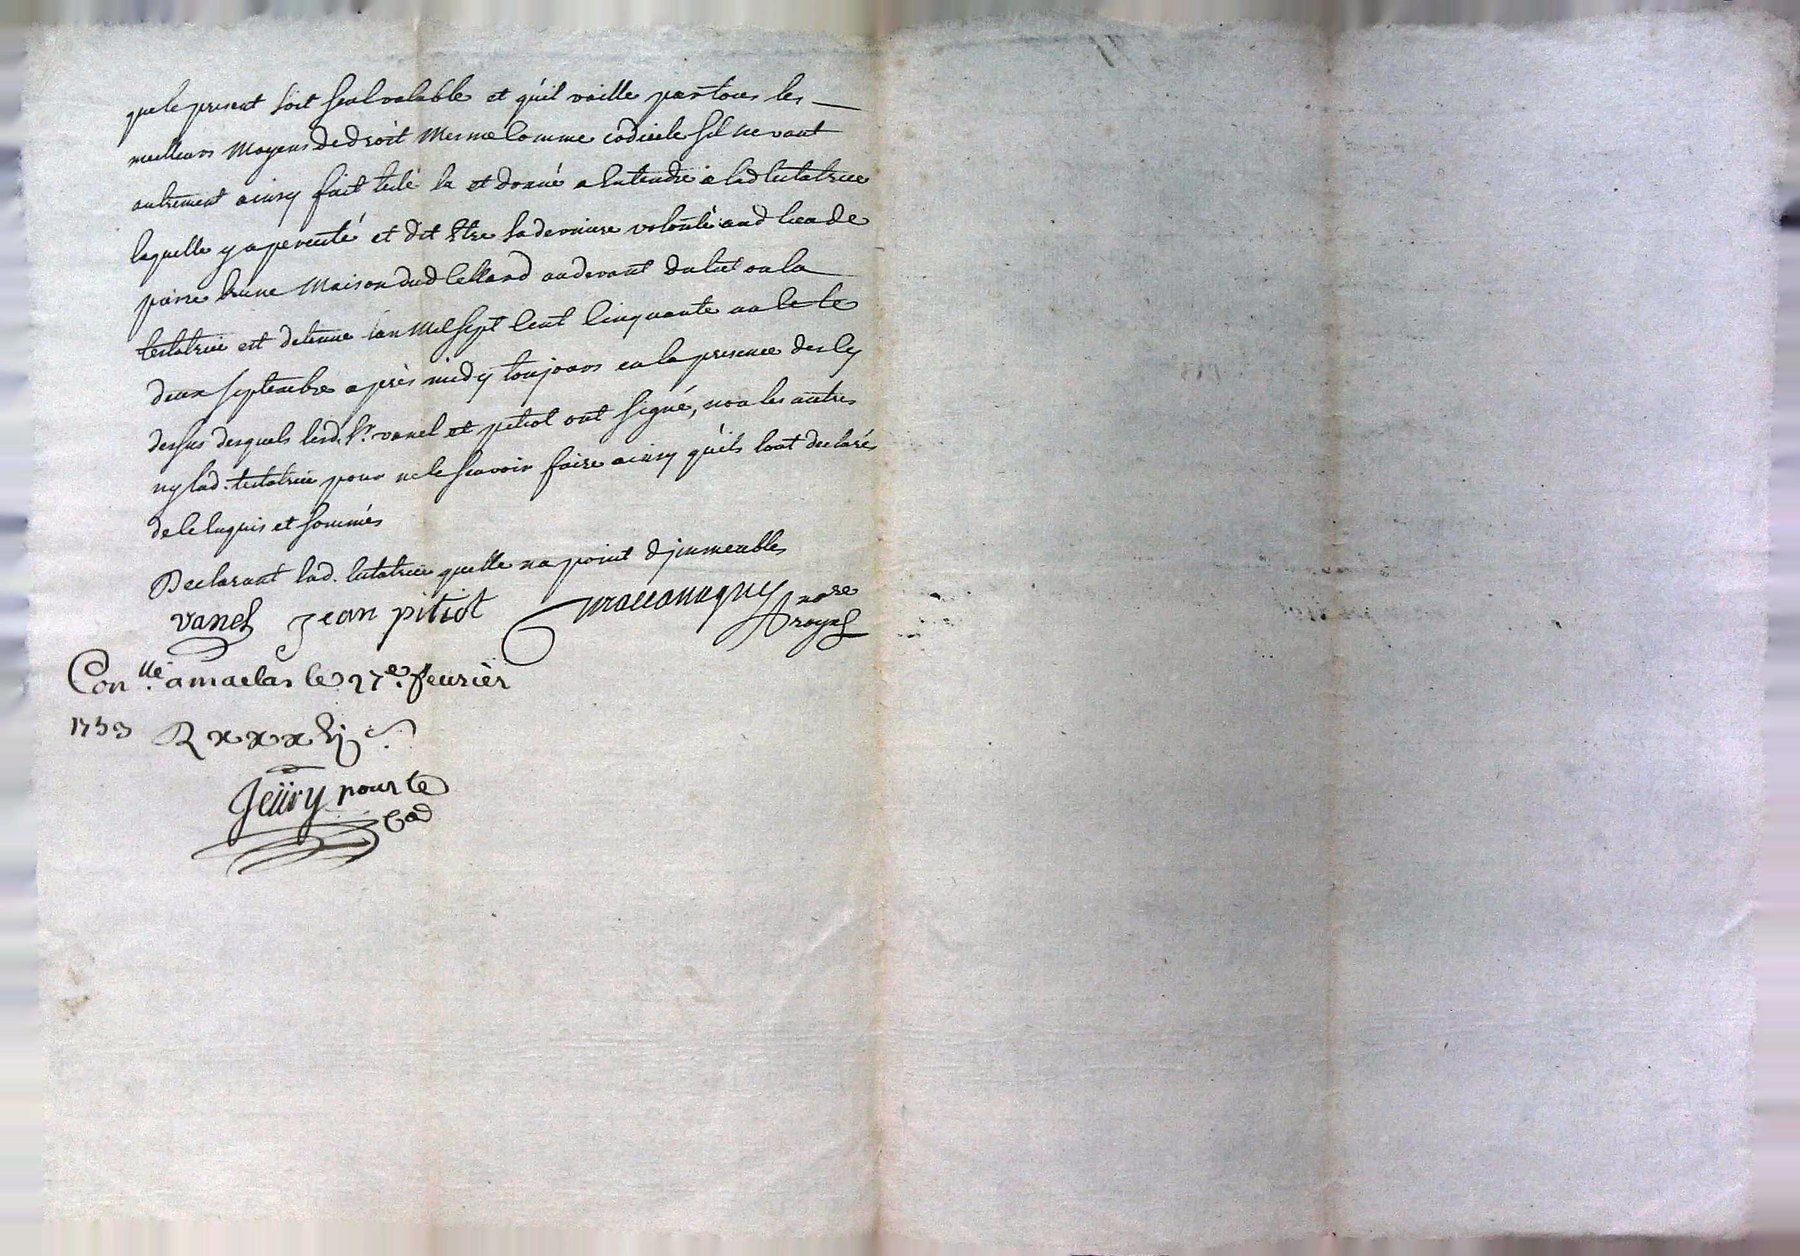 que le present soit seul valable et quil vaille par tous les
meilleurs moyens de droit mesme comme codicile sil ne vaut
autrement ainsy fait testé lu et donné a entendre a lad testatrice
laquelle y a percisté et dit etre sa derniere volonté aud lieu de
maison dud au devant du lict ou la
testatrice est detenue lan mil sept cent cinquante un le
deux septembre après midy toujours en la presence des cy
dessus desquels lesd. sr. vanel et pitiot ont signé, non les autres
ny lad. testatrice pour ne le scavoir faire ainsy quils lont declaré
de ce enquis et sommés
Declarant lad. testatrice quelle na point djmmeubles
vanel Jean pitiot nore
royal
Con.llé a maclas le 27e. feurier
1753 R
Jeüry pour le